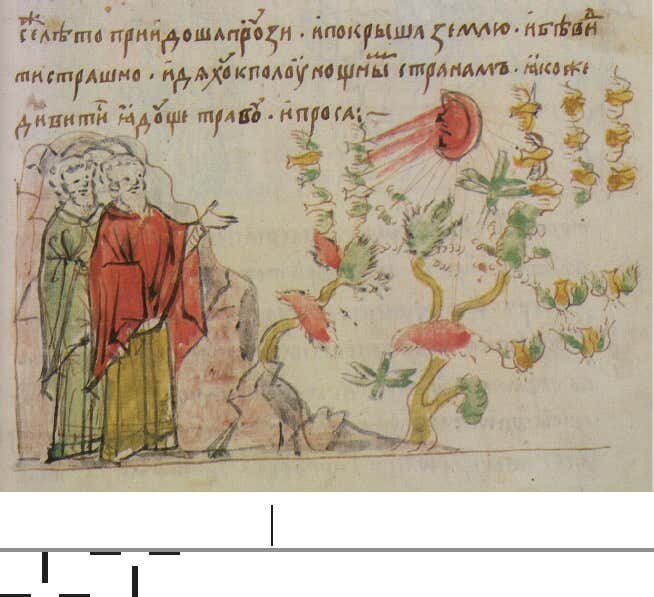 се лѣто прийдоша прѹзи · и покрыша землю · и бѣ ви
ти страшно · идяхѹ к полѹнощнымъ странамъ · ꙗкоже
дивити ꙗдѹще травѹ · и проса:~